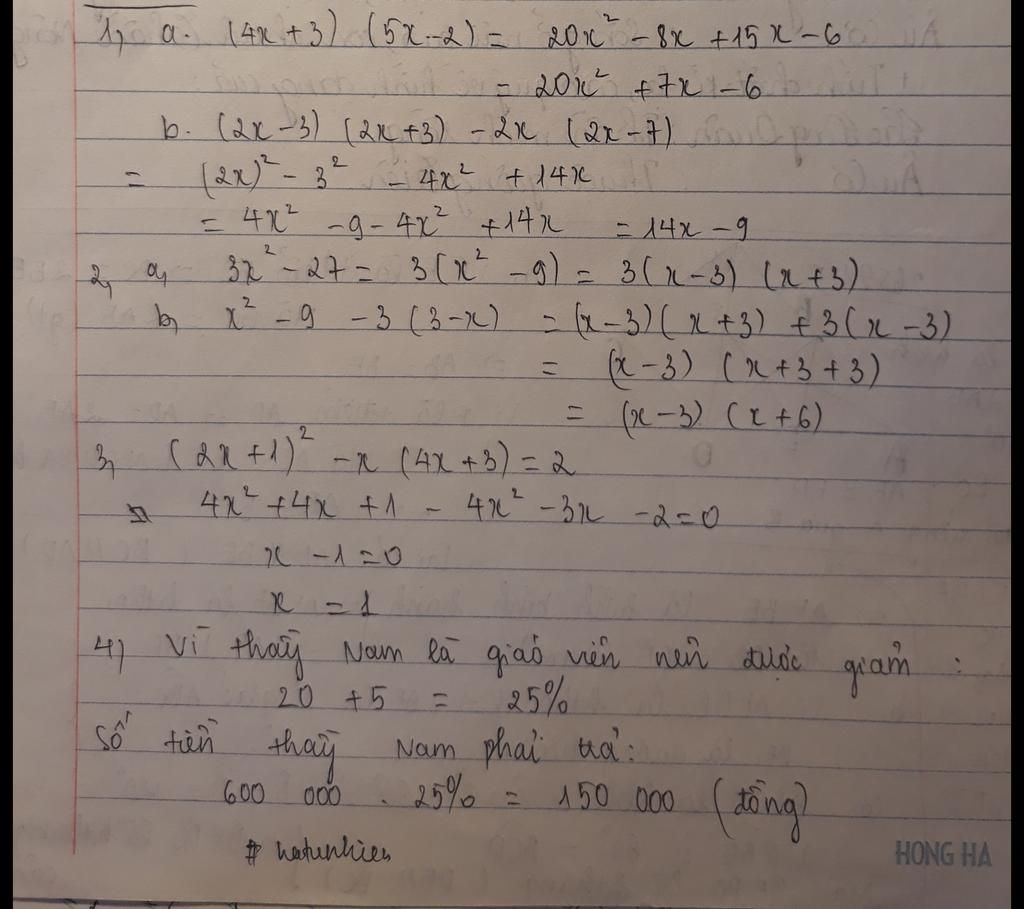 1, a. (4x+3) (5x-2) = 20x² - 8x + 15x - 6
= 20x² + 7x - 6
b. (2x-3) (2x+3) - 2x (2x-7)
= (2x)² - 3² - 4x² + 14x
= 4x² - 9 - 4x² + 14x = 14x - 9
2, a, 3x² - 27 = 3(x² - 9) = 3(x-3) (x+3)
b, x² - 9 - 3(3-x) = (x-3)(x+3) + 3(x-3)
= (x-3) (x+3+3)
= (x-3) (x+6)
3, (2x+1)² - x (4x+3) = 2
4x² + 4x + 1 - 4x² - 3x - 2 = 0
x - 1 = 0
x = 1
4) Vì thầy Nam là giáo viên nên được giảm :
20 + 5 = 25%
Số tiền thầy Nam phải trả:
600 000 . 25% = 150 000 (đồng)
#
HONG HA